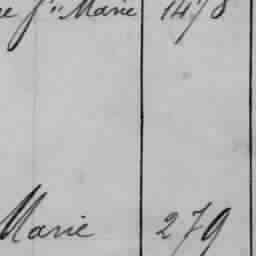 Ste Marie 1478
Marie 279